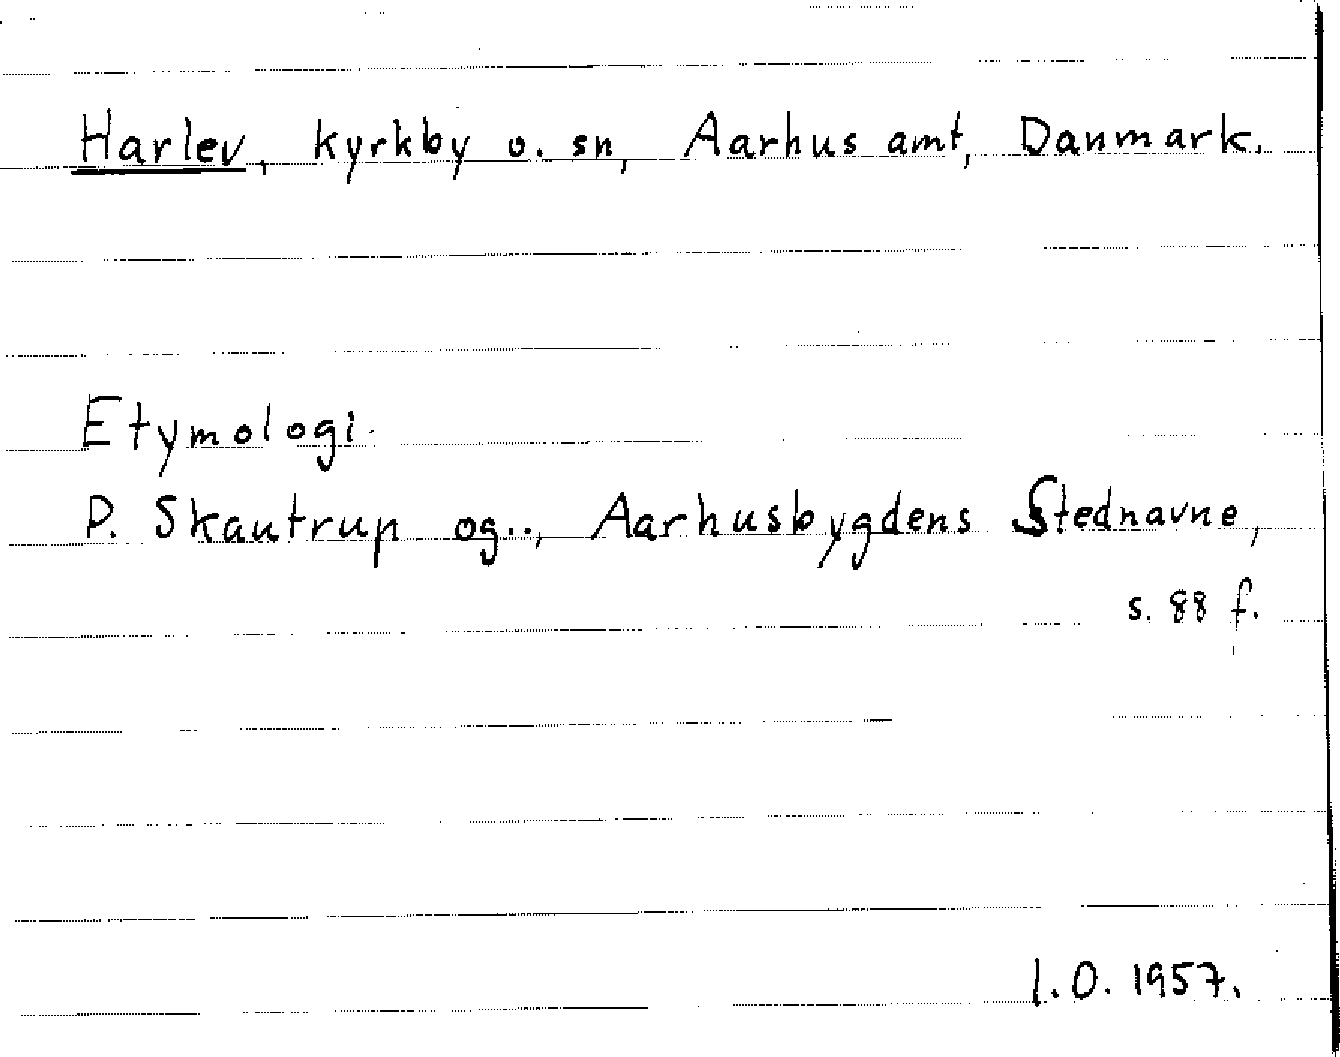 Harlev, kyrkby o. sn, Aarhus amt, Danmark.
Etymologi.
P. Skautrup og.., Aarhusbygdens Stednavne,
s. 88 f.
I.O. 1957.